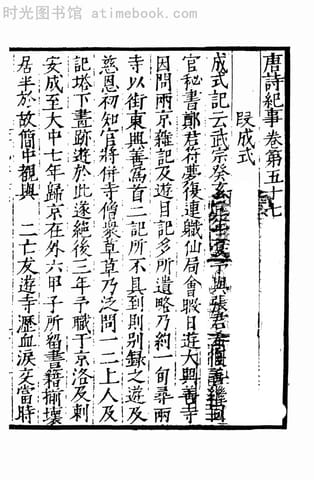 时光图书馆 www.atimebook.com
唐詩紀事卷第五十七
段成式
成式記云武宗癸亥三年夏予與張君希復善繼同
官秘書鄭君符夢復連職仙局會暇日遊大興善寺
因問兩京雜記及遊目記多所遺略乃約一旬尋兩
寺以街東興善爲首二記所不具則別錄之遊及
慈恩初知官將併寺僧衆草草乃泛問一二上人及
記塔下畫跡遊於此遂絕後三年予職于京洛及刺
安成至大中七年歸京在外六甲子所留書籍揃壞
居半於故簡中覩與二亡友遊寺瀝血淚交當時